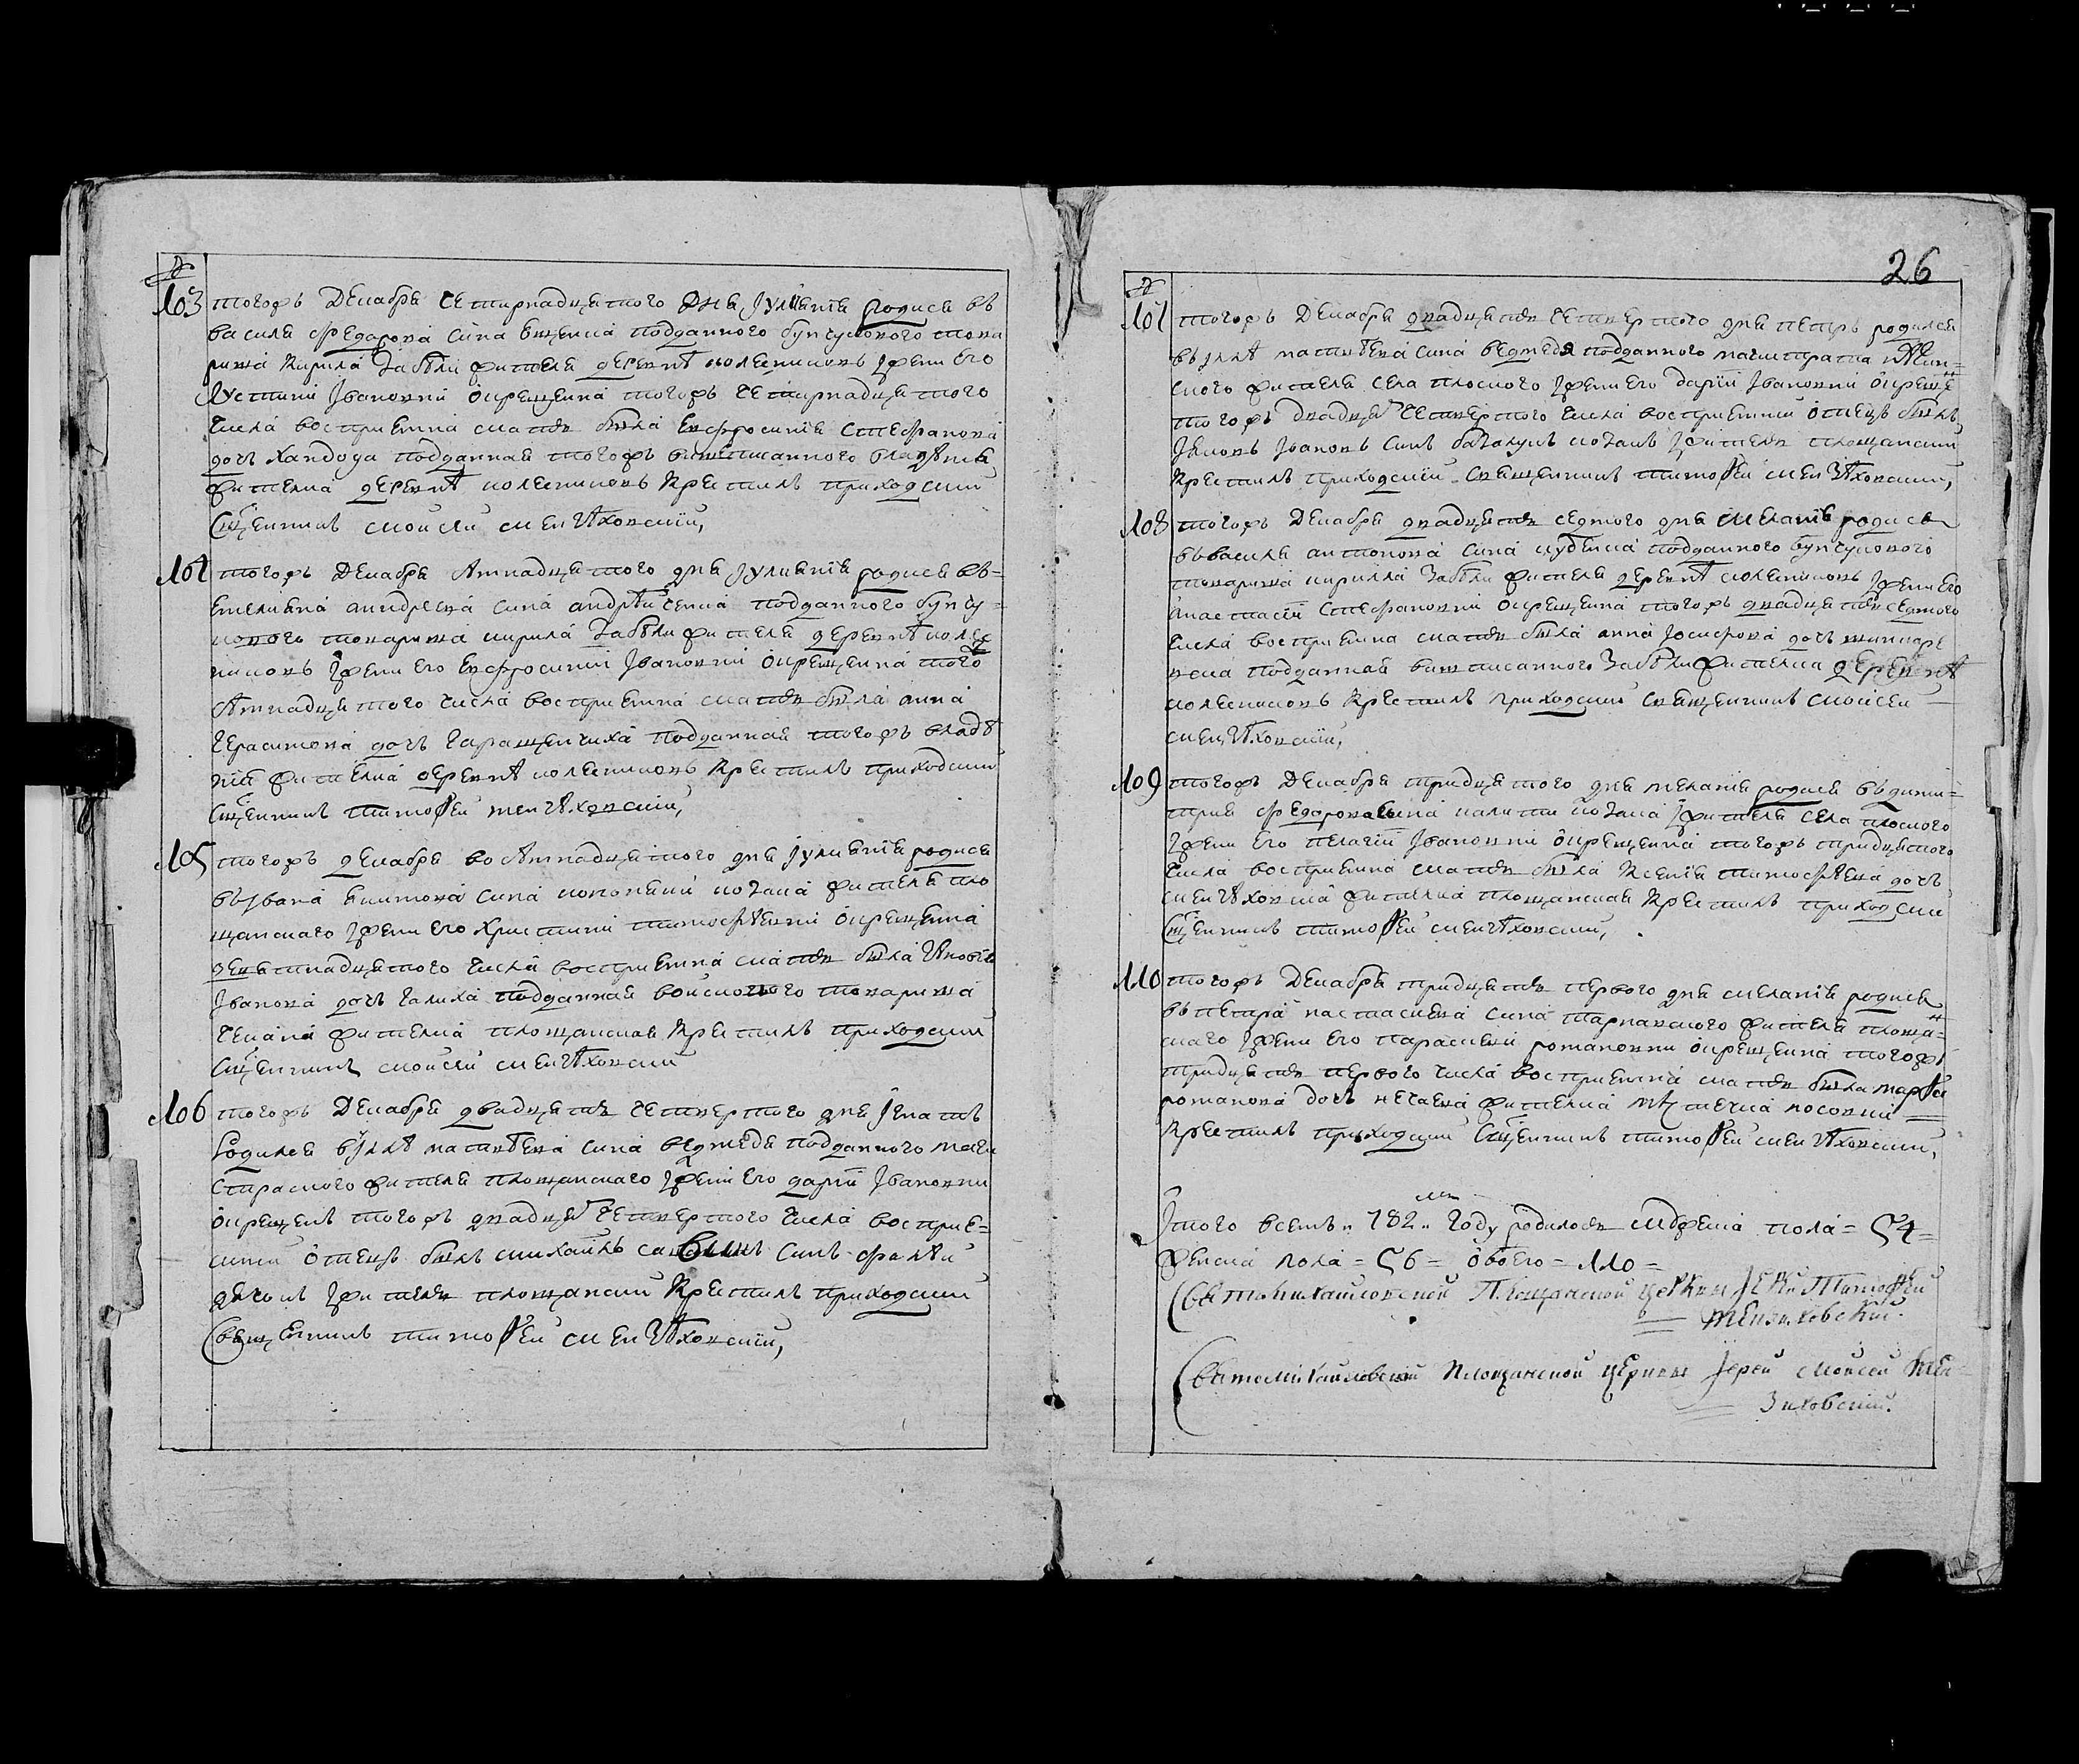 103 тогожъ Декабря Четирнадцятого Дня Јулиания родися въ
василя Федарова сина Ященка подданного бунчукового това
риша Кирила Забѣли жителя деревнѣ колесниковъ Јжени его
Јустинїи Јвановни окрещенна тогожъ Четирнадцятого
числа восприемна мати била Ефросиния Стефанова
дочь Хандога подданная тогожъ вишеписанного владѣния
жителка деревнѣ колесниковъ Крестилъ приходский
Сщенникъ моисей мензѣховский,
104 тогожъ Декабря Атнадцятого дня Јулиания родися въ=
емелияна андреева сина андрѣйченка подданного бунчу=
кового товариша кирила Забѣли жителя деревнѣ колес
никовъ Јжени его Евфросинии Јвановни окрещенна того
Атнадцятого числа восприемна мати била анна
Герасимова дочь Гаращенчиха подданная тогожъ владѣ
ния жителка деревнѣ колесниковъ Крестилъ приходский
Сщенникъ тимоѳей мензѣховский,
105 тогожъ декабря во Атнадцятого дня Јулиания родися
въ Јвана Екимова сина кононенка козака жителя пло
щанского Јжени его Христини тимофѣевни окрещенна
девятнадцятого числа восприемна мати била
Јванова дочь Галиха подданная войскового товариша
жителка площанская Крестилъ приходский
Сщенникъ моисей мензѣховский
106 тогожъ Декабря двадцять четвертого дня Јгнатъ
Родился въ Јллѣ матвѣева сина ведмедя подданного маги
стратского жителя площанского Јжени его дарии Јвановни
окрещенъ тогожъ двадцять четвертого числа восприе=
мний отецъ билъ михайлъ синъ
Јжитель площанский Крестилъ приходский
Священникъ тимоѳей мензѣховский,
26
107 тогожъ Декабря двадцять четвертого дня петръ родился
въ Јллѣ матвѣева сина ведмедя подданного магистрата нѣжин=
ского жителя села плоского Јжени его дарии Јвановни окреще
тогожъ двадцять четвертого числа восприемний отецъ билъ
Јаковъ Јвановъ синъ козакъ Јжитель площанский
Крестилъ приходский Священникъ тимоѳей мензѣховский,
108 тогожъ Декабря двадцять седмого дня мелания родися
въ василя антонова сина куценка подданного бунчукового
товариша кирилла Забѣли жителя деревнѣ колесниковъ Јжени его
анастасии Стефановни окрещенна тогожъ двадцять седмого
числа восприемна мати била анна Јосифова дочь шинкаре
нкова подданная вишписанного Забѣли жителка деревнѣ
колесниковъ Крестилъ приходский Священникъ моисей
мензѣховский,
109 тогожъ Декабря тридцятого дня мелания родися въ дими=
трия Федарова сина калити козака Јжителя села плоского
Јжени его пелагии Јвановни окрещенна тогожъ тридцятого
числа восприемна мати била Ксения тимофѣева дочь
мензѣховска жителка площанская Крестилъ приходски
Сщенникъ тимоѳей мензѣховский,
110 тогожъ Декабря тридцять первого дня мелания родися
въ петра настасиева сина тарнавского жителя площа=
нского Јжени его параскеви романовни окрещенна тогожъ
тридцять первого числа восприемна мати била марѳа
романова дочь нечаева жителка мѣстечка носовки
Крестилъ приходский Сщенникъ тимоѳей мензѣховский,
Јтого всемъ 782 году родилося мужеска пола = 54 =
женска пола = 56 = обоего = 110 =
Святомихайловской Площанской церкви Јерей Тимоѳей
мензиховский.
Святомихайловской Площанской церкви Јерей Моисей Мен=
зиховский.